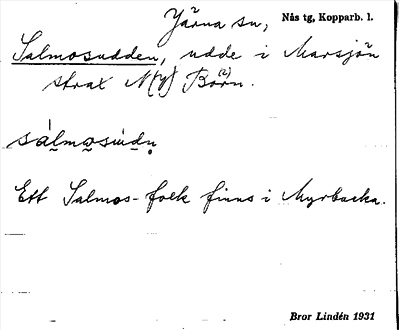 Järna sn, Nås tg, Kopparb. l.
Salmosudden, udde i Marsjön
strax N(V) Börn.
sálmosùdn
Ett Salmos-folk finns i Myrbacka.
Bror Lindén 1931